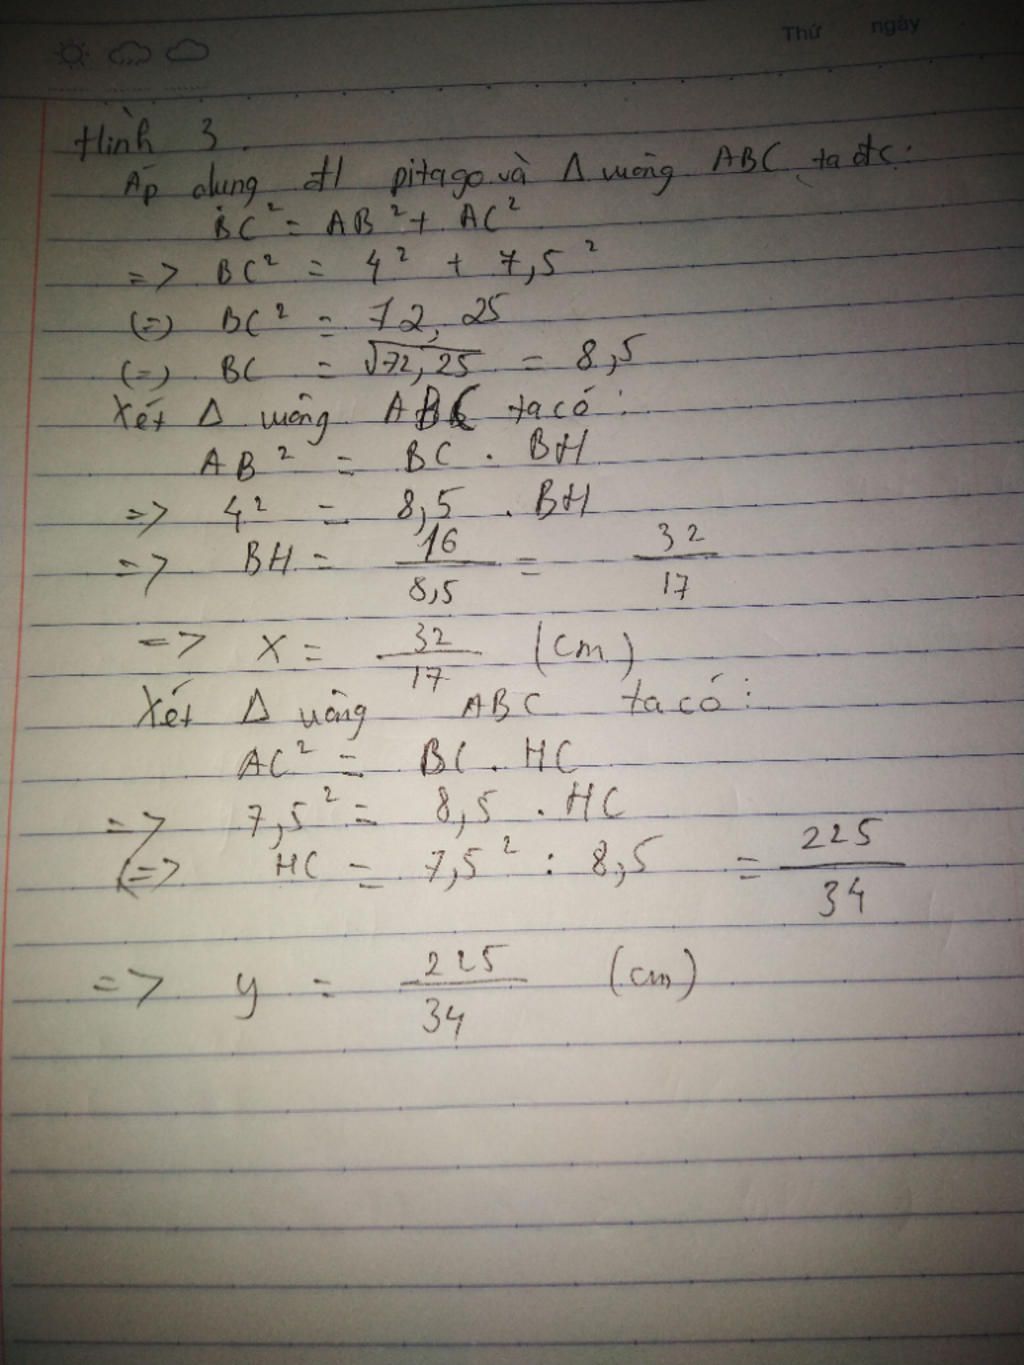 Thứ ngày
Hình 3.
Áp dụng đl pitago và Δ vuông ABC ta đc:
BC² = AB² + AC²
=> BC² = 4² + 7,5²
(=) BC² = 72,25
(=) BC = √72,25 = 8,5
Xét Δ vuông ABC ta có:
AB² = BC . BH
=> 4² = 8,5 . BH
=> BH = 16/8,5 = 32/17
=> x = 32/17 (cm)
Xét Δ vuông ABC ta có:
AC² = BC . HC
=> 7,5² = 8,5 . HC
(=> HC = 7,5² : 8,5 = 225/34
=> y = 225/34 (cm)